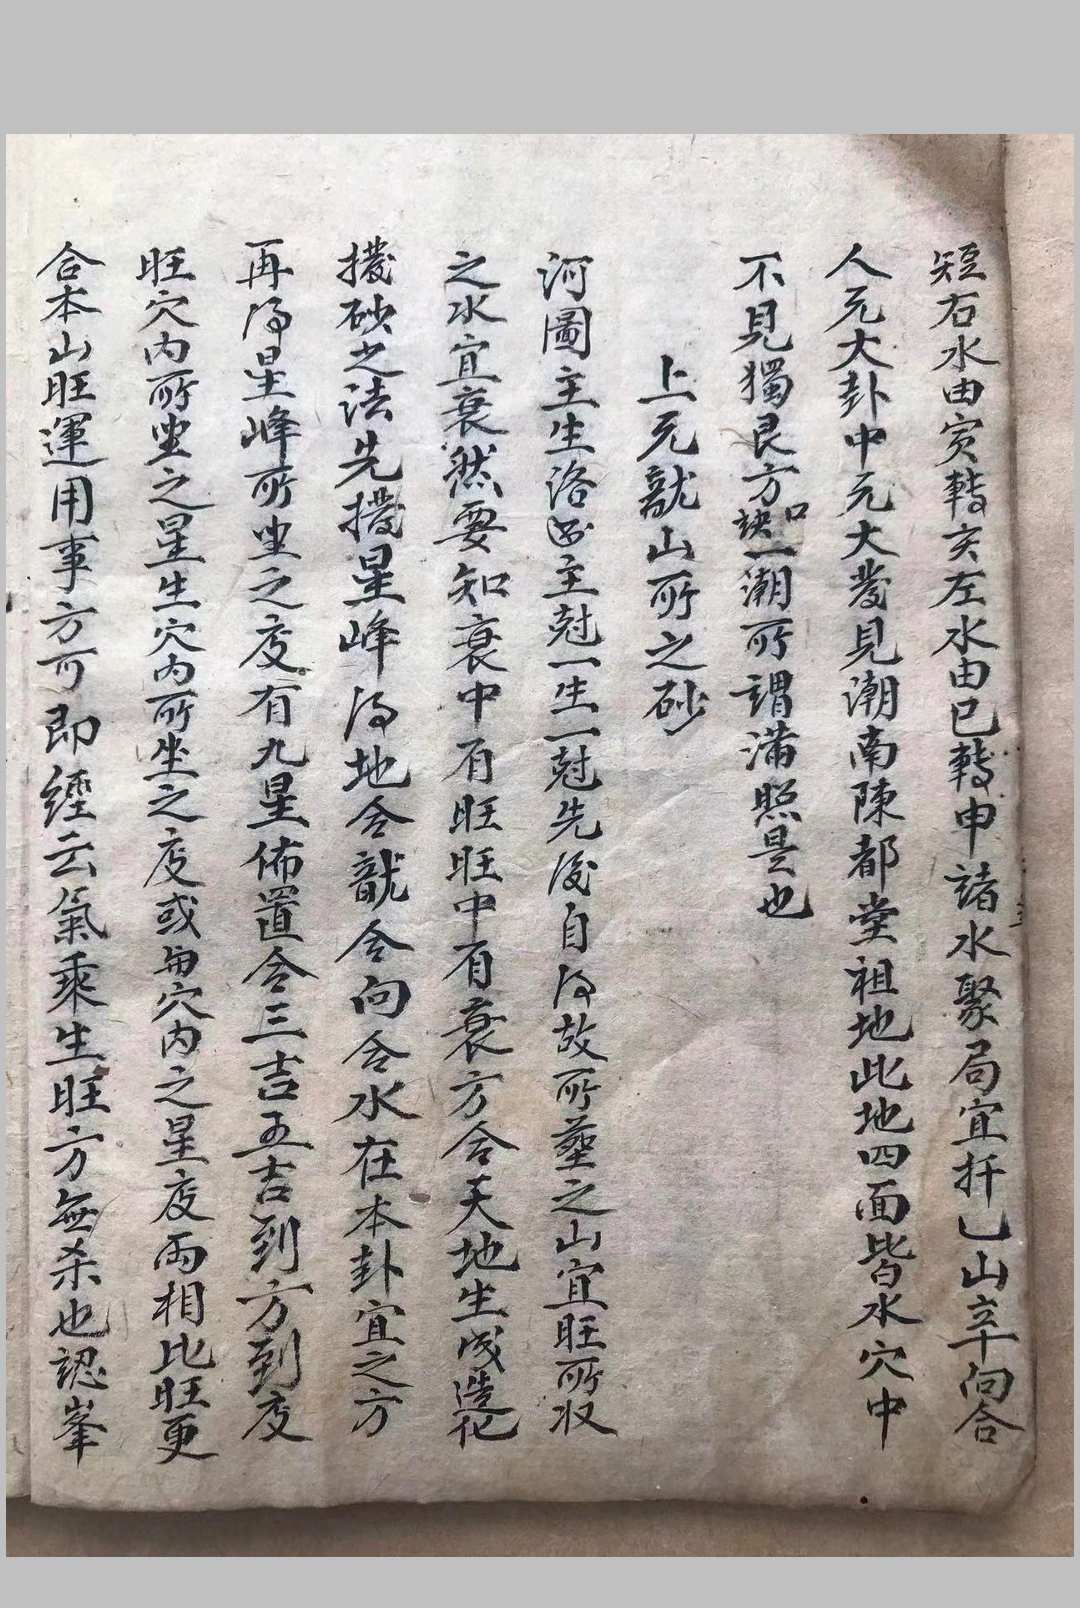 短右水由寅轉亥左水由巳轉申諸水聚局宜扦乙山辛向合
人元大卦中元大發見潮南陳都堂祖地此地四面皆水穴中
不見獨艮方口訣一潮所謂滿照是也
上元龍山所之砂
河圖主生洛書主尅一生一尅先後自得故所塟之山宜旺所收
之水宜衰然要知衰中有旺旺中有衰方合天地生成造化
撥砂之法先撥星峰得地合龍合向合水在本卦宜之方
再得星峰所坐之度有九星佈置合三吉五吉到方到度
旺穴內所坐之星生穴內所坐之度或與穴內之星度兩相比旺更
合本山旺運用事方可即經云氣乘生旺方無杀也認峯